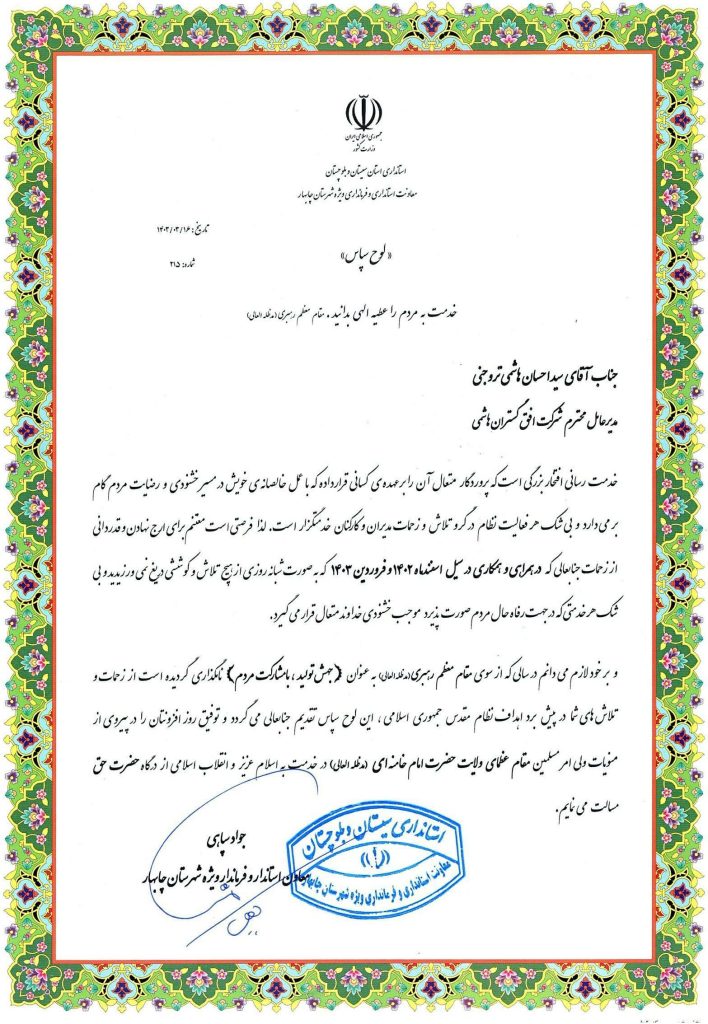 جمهوری اسلامی ایران
وزارت کشور
استانداری استان سیستان و بلوچستان
معاونت استانداری و فرمانداری ویژه شهرستان چابهار
تاریخ: ۱۴۰۳/۰۳/۱۶
«لوح سپاس»
شماره: ۲۱۵
خدمت به مردم را عطیه الهی بدانید. مقام معظم رهبری (مدظله العالی)
جناب آقای سید احسان هاشمی تروجنی
مدیرعامل محترم شرکت افق گستران هاشمی
خدمت رسانی افتخار بزرگی است که پروردگار متعال آن را بر عهده ی کسانی قرار داده که با عمل خالصانه ی خویش در مسیر خشنودی و رضایت مردم گام
بر می دارد و بی شک هر فعالیت نظام در گرو تلاش و زحمات مدیران و کارکنان خدمتگزار است. لذا فرصتی است مغتنم برای ارج نهادن و قدردانی
از زحمات جنابعالی که در همراهی و همکاری در سیل اسفندماه ۱۴۰۲ و فروردین ۱۴۰۳ که به صورت شبانه روزی از هیچ تلاش و کوششی دریغ نمی ورزیدید و بی
شک هر خدمتی که در جهت رفاه حال مردم صورت پذیرد موجب خشنودی خداوند متعال قرار می گیرد.
و بر خود لازم می دانم در سالی که از سوی مقام معظم رهبری (مدظله العالی) به عنوان (جهش تولید، با مشارکت مردم) نامگذاری گردیده است از زحمات و
تلاش های شما در پیش برد اهداف نظام مقدس جمهوری اسلامی، این لوح سپاس تقدیم جنابعالی می گردد و توفیق روز افزونتان را در پیروی از
منویات ولی امر مسلمین مقام عظمای ولایت حضرت امام خامنه ای (مدظله العالی) در خدمت به اسلام عزیز و انقلاب اسلامی از درگاه حضرت حق
مسالت می نمایم.
جواد سپاهی
معاون استاندار و فرماندار ویژه شهرستان چابهار
استانداری سیستان و بلوچستان
معاونت استانداری و فرمانداری ویژه شهرستان چابهار